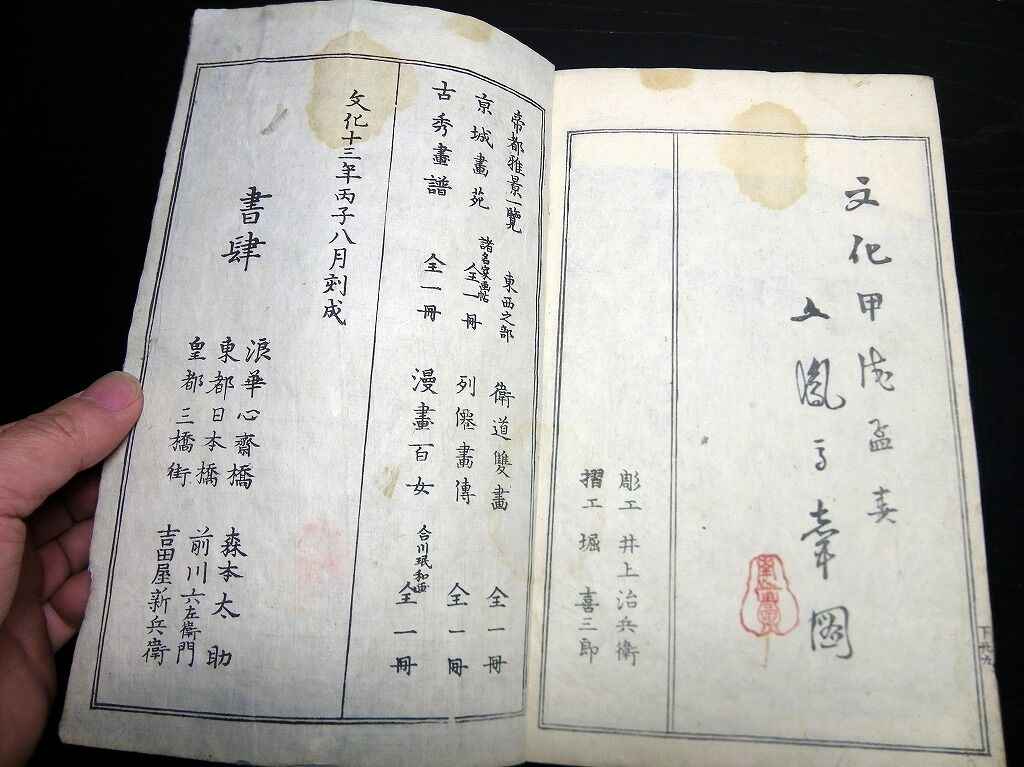 文化甲戌孟春
文鳳馬聲圖
彫工 井上治兵衛
摺工 堀 喜三郎
帝都雅景一覽 東西之部 衛道雙畫 全一冊
京城畫苑 諸名家画帖 全一冊 列僊畫傳 全一冊
古秀畫譜 全一冊 漫畫百女 合川珉和画 全一冊
文化十三年丙子八月刻成
書肆
浪華心齋橋 森本太助
東都日本橋 前川六左衛門
皇都三橋街 吉田屋新兵衛